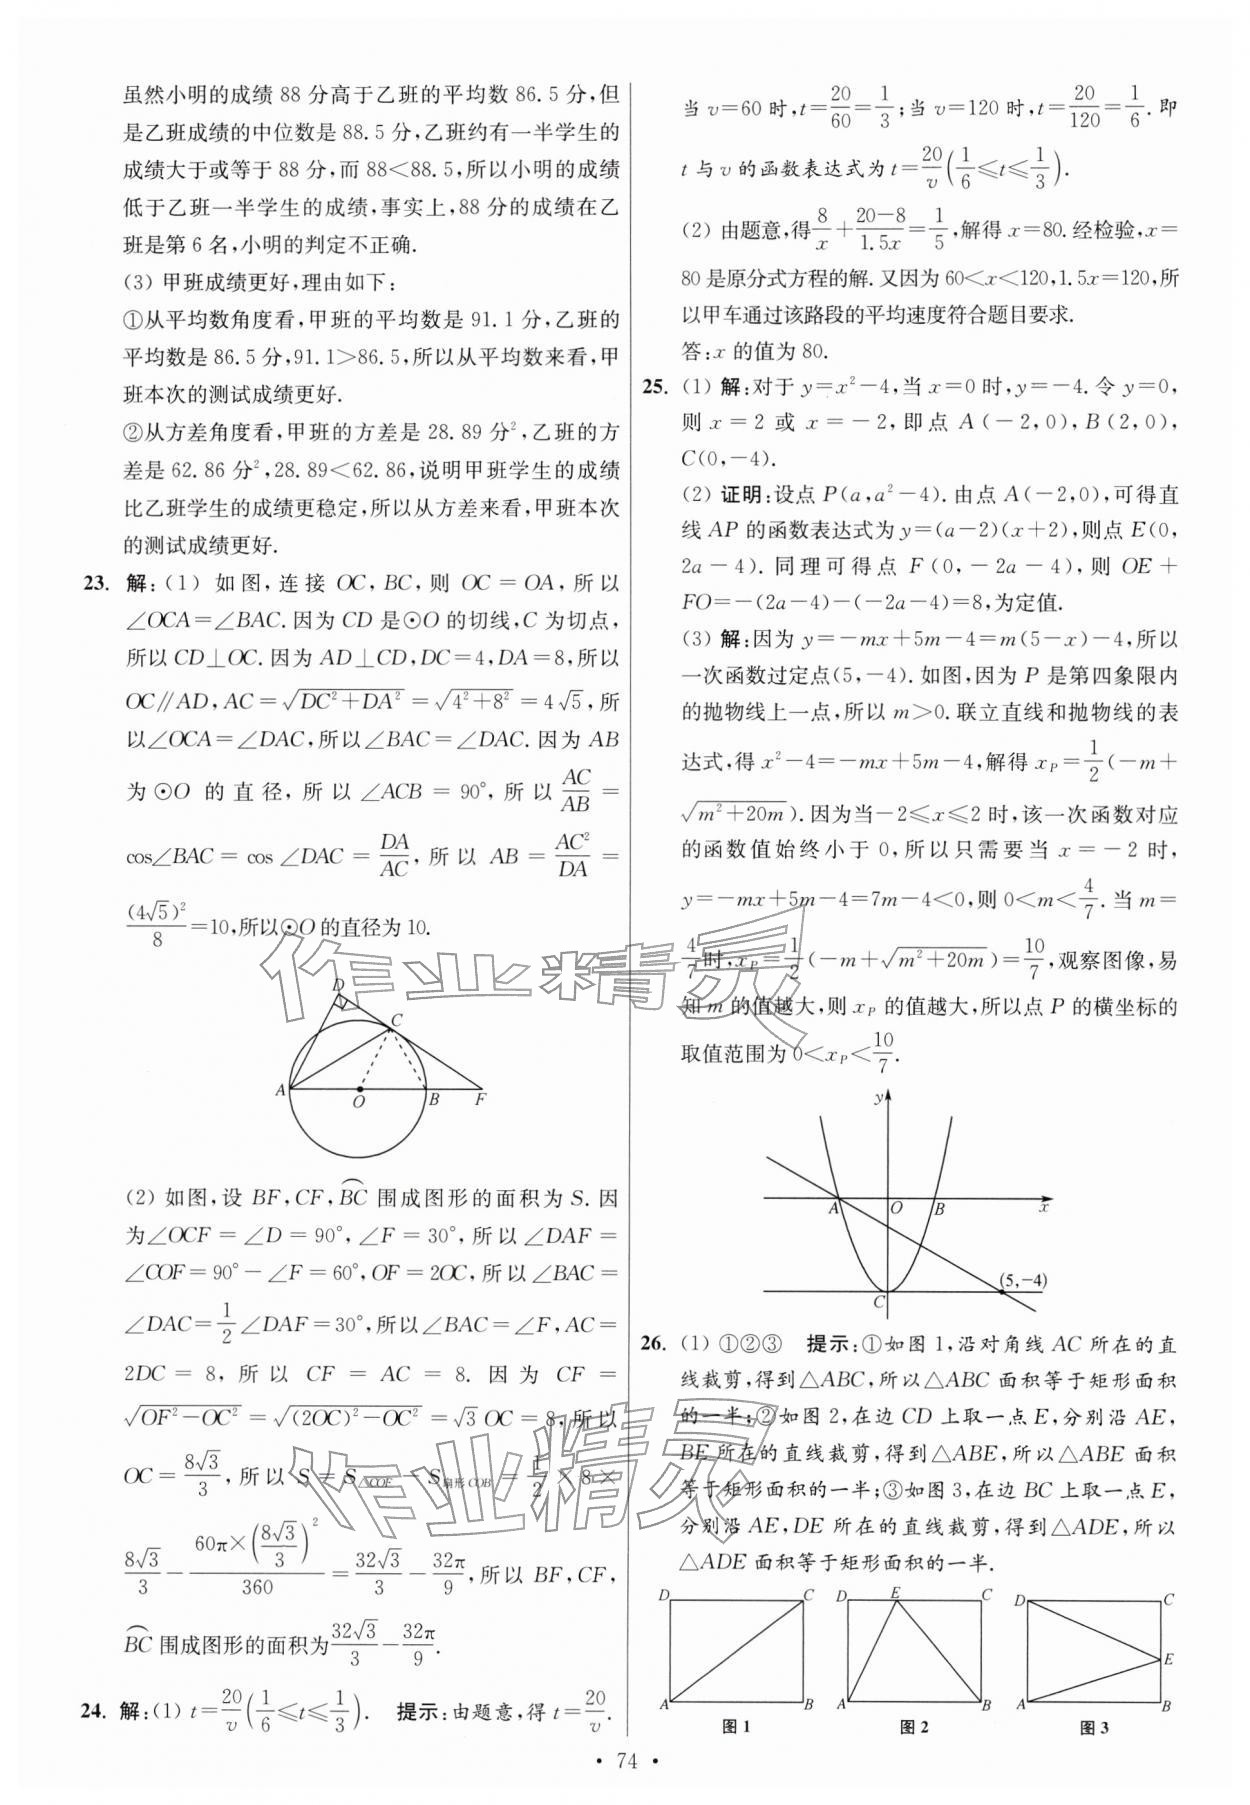 虽然小明的成绩 88 分高于乙班的平均数 86.5 分,但
是乙班成绩的中位数是 88.5 分,乙班约有一半学生的
成绩大于或等于 88 分,而 88<88.5,所以小明的成绩
低于乙班一半学生的成绩,事实上,88 分的成绩在乙
班是第 6 名,小明的判定不正确.
(3) 甲班成绩更好,理由如下:
①从平均数角度看,甲班的平均数是 91.1 分,乙班的
平均数是 86.5 分,91.1>86.5,所以从平均数来看,甲
班本次的测试成绩更好.
②从方差角度看,甲班的方差是 28.89 分²,乙班的方
差是 62.86 分²,28.89<62.86,说明甲班学生的成绩
比乙班学生的成绩更稳定,所以从方差来看,甲班本次
的测试成绩更好.
23. 解:(1) 如图,连接 OC,BC,则 OC=OA,所以
∠OCA=∠BAC.因为 CD 是⊙O 的切线,C 为切点,
所以 CD⊥OC.因为 AD⊥CD,DC=4,DA=8,所以
OC∥AD,AC=√(DC²+DA²)=√(4²+8²)=4√5,所
以∠OCA=∠DAC,所以∠BAC=∠DAC.因为 AB
为⊙O 的直径,所以∠ACB=90°,所以 AC/AB=
cos∠BAC=cos∠DAC=DA/AC,所以 AB=AC²/DA=
(4√5)²/8=10,所以⊙O 的直径为 10.
D
C
A
O
B
F
(2) 如图,设 BF,CF,BC⌒ 围成图形的面积为 S.因
为∠OCF=∠D=90°,∠F=30°,所以∠DAF=
∠COF=90°-∠F=60°,OF=2OC,所以∠BAC=
∠DAC=1/2∠DAF=30°,所以∠BAC=∠F,AC=
2DC=8,所以 CF=AC=8.因为 CF=
√(OF²-OC²)=√((2OC)²-OC²)=√3OC=8,所以
OC=8√3/3,所以 S=S△COF-S扇形COB=1/2×8×
8√3/3-60π×(8√3/3)²/360=32√3/3-32π/9,所以 BF,CF,
BC⌒ 围成图形的面积为32√3/3-32π/9.
24. 解:(1) t=20/v(1/6≤t≤1/3). 提示:由题意,得 t=20/v.
当 v=60 时,t=20/60=1/3;当 v=120 时,t=20/120=1/6.即
t 与 v 的函数表达式为 t=20/v(1/6≤t≤1/3).
(2) 由题意,得8/x+(20-8)/1.5x=1/5,解得 x=80.经检验,x=
80 是原分式方程的解.又因为 60<x<120,1.5x=120,所
以甲车通过该路段的平均速度符合题目要求.
答:x 的值为 80.
25. (1) 解:对于 y=x²-4,当 x=0 时,y=-4.令 y=0,
则 x=2 或 x=-2,即点 A(-2,0),B(2,0),
C(0,-4).
(2) 证明:设点 P(a,a²-4).由点 A(-2,0),可得直
线 AP 的函数表达式为 y=(a-2)(x+2),则点 E(0,
2a-4).同理可得点 F(0,-2a-4),则 OE+
FO=-(2a-4)-(-2a-4)=8,为定值.
(3) 解:因为 y=-mx+5m-4=m(5-x)-4,所以
一次函数过定点(5,-4).如图,因为 P 是第四象限内
的抛物线上一点,所以 m>0.联立直线和抛物线的表
达式,得 x²-4=-mx+5m-4,解得 xP=1/2(-m+
√(m²+20m)).因为当-2≤x≤2 时,该一次函数对应
的函数值始终小于 0,所以只需要当 x=-2 时,
y=-mx+5m-4=7m-4<0,则 0<m<4/7.当 m=
4/7时,xP=1/2(-m+√(m²+20m))=10/7,观察图像,易
知 m 的值越大,则 xP 的值越大,所以点 P 的横坐标的
取值范围为 0<xP<10/7.
y
A
O
B
x
C
(5,-4)
26. (1) ①②③ 提示:①如图 1,沿对角线 AC 所在的直
线裁剪,得到△ABC,所以△ABC 面积等于矩形面积
的一半;②如图 2,在边 CD 上取一点 E,分别沿 AE,
BE 所在的直线裁剪,得到△ABE,所以△ABE 面积
等于矩形面积的一半;③如图 3,在边 BC 上取一点 E,
分别沿 AE,DE 所在的直线裁剪,得到△ADE,所以
△ADE 面积等于矩形面积的一半.
D C D E C D C
E
A B A B A B
图 1 图 2 图 3
• 74 •
作业精灵
作业精灵